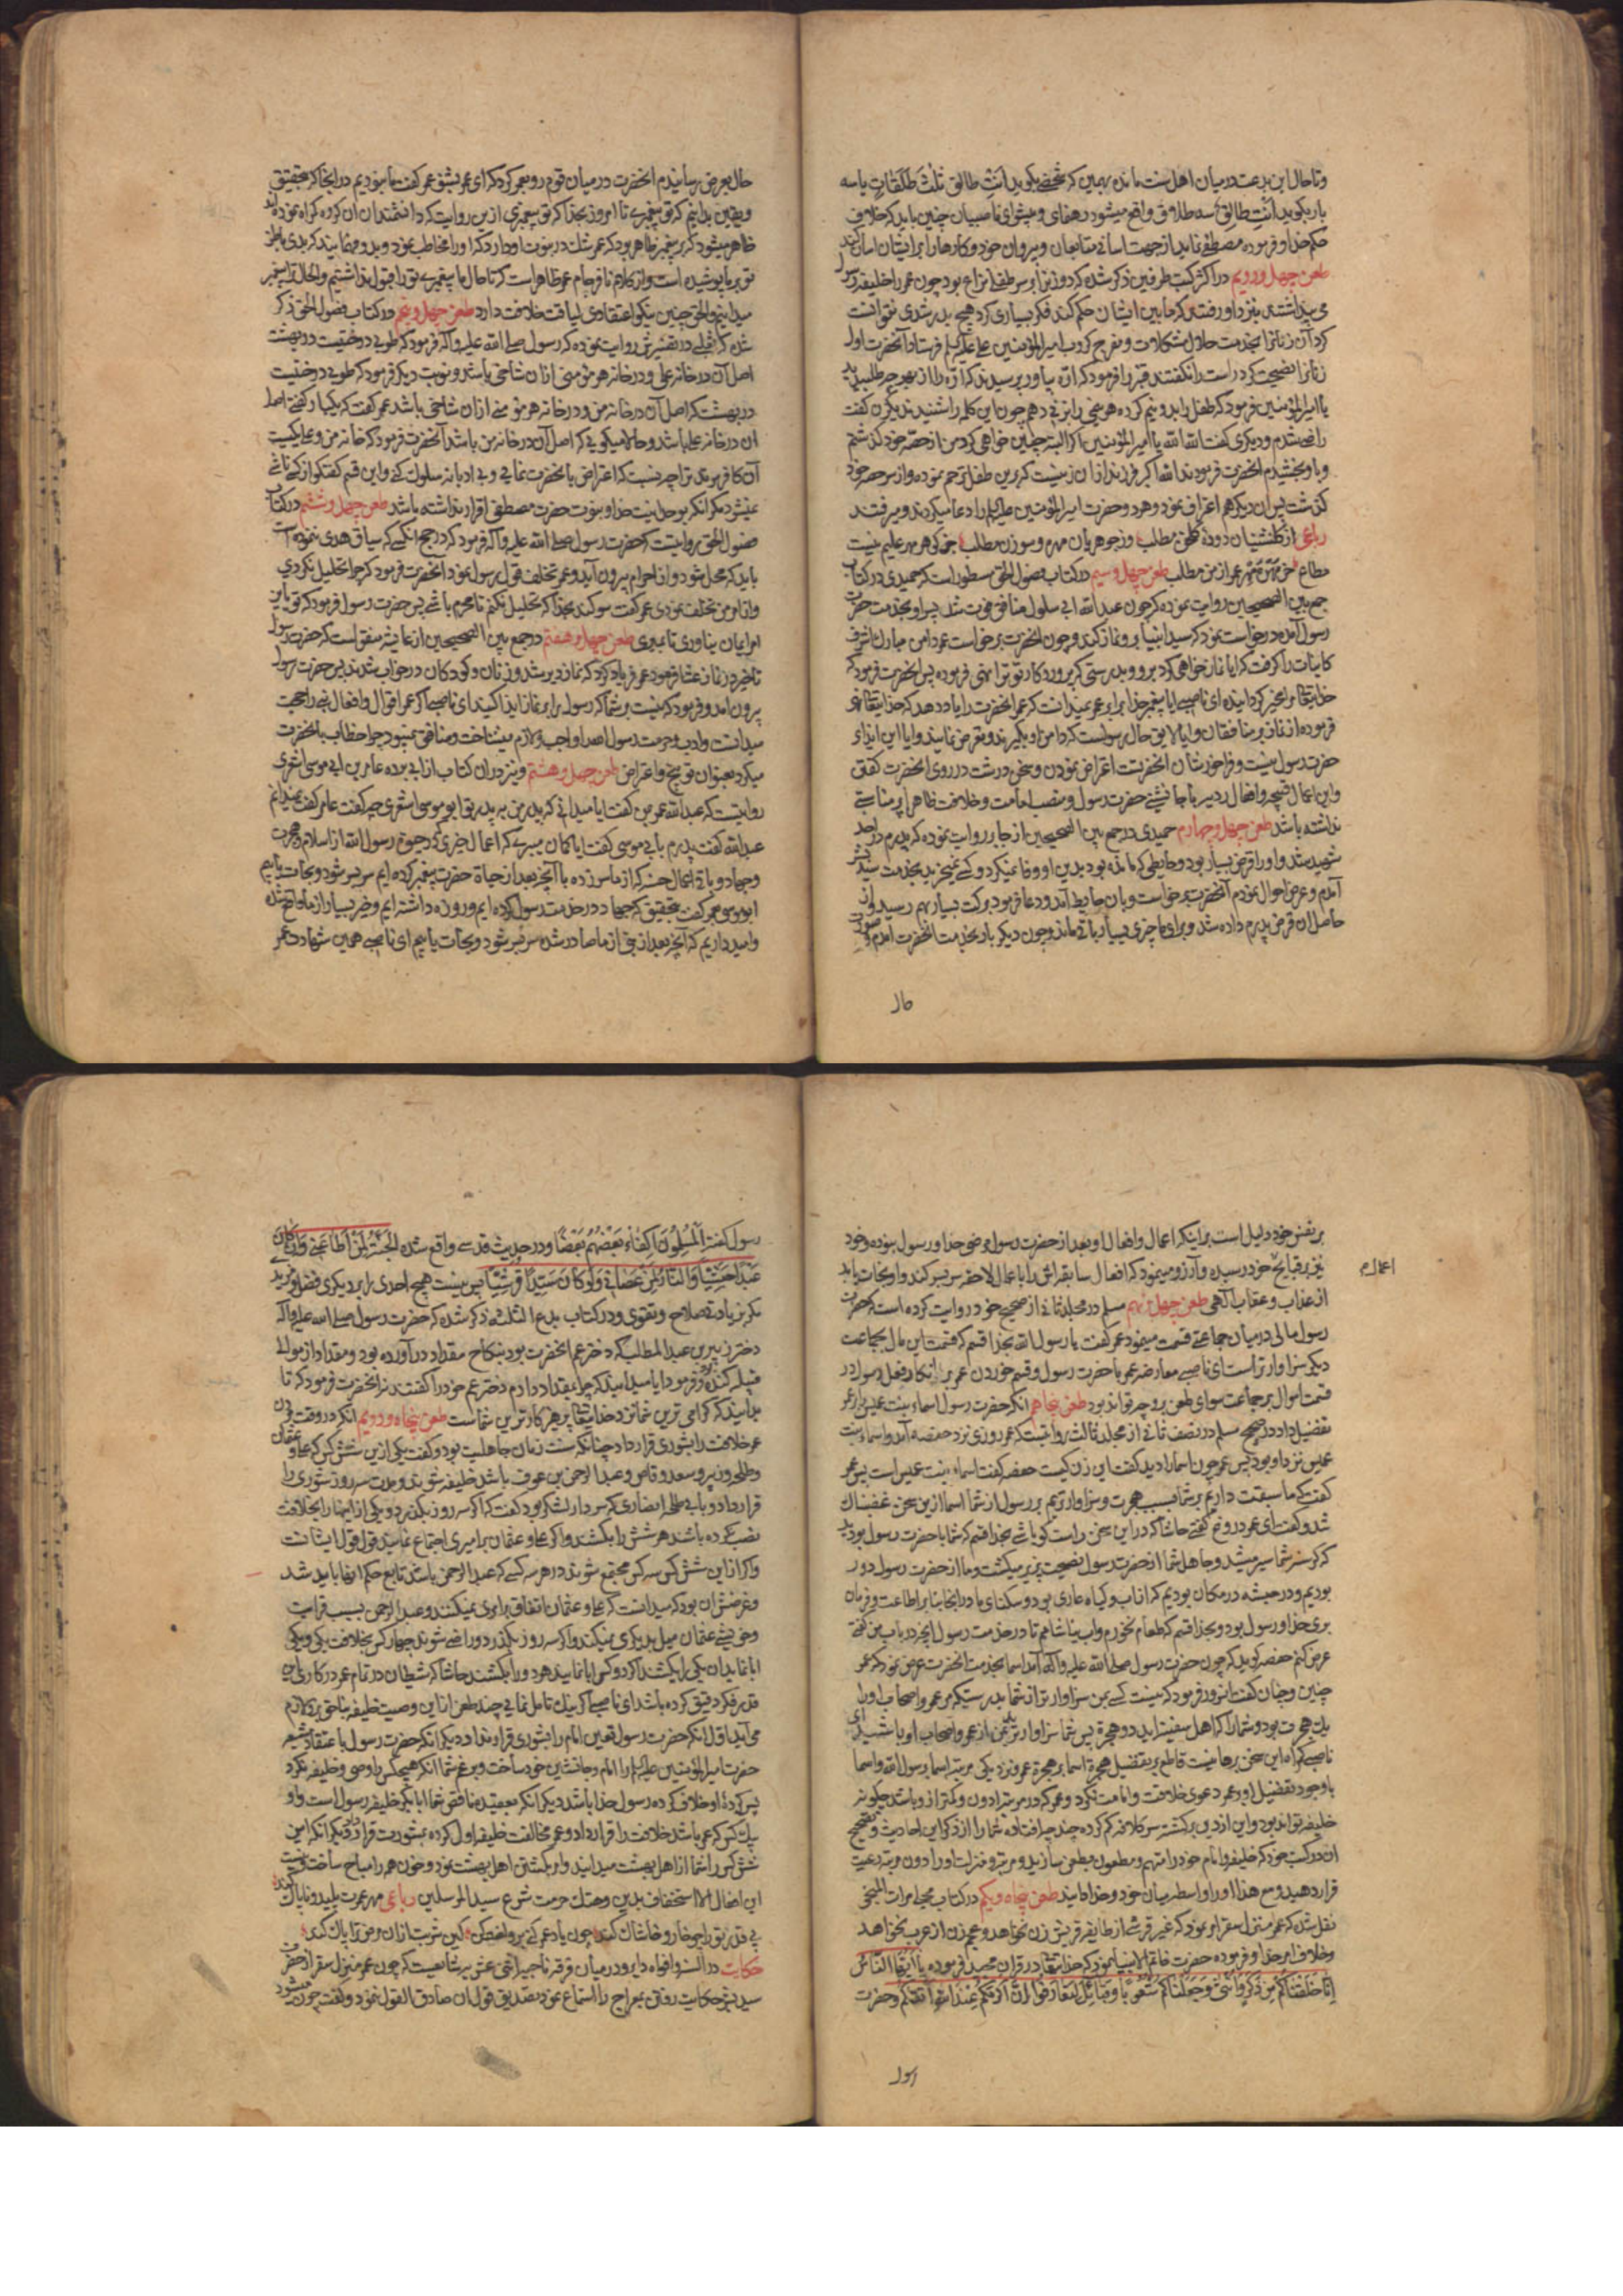 وتا حال این بدعت در میان اهل سنت مانده بهمین که شخصی بکوید انت طالق ثلث طلقات یا سه
بار بکوید انت طالق سه طلاق واقع میشود رهنمای و پیشوای ناصبیان چنین باید که خلاف
حکم خدا و فرموده مصطفی نماید از جهت اسانی متابعان و پیروان خود و کارها را بر ایشان اسان کند
طعن چهل و دویم در اکثر کتب طرفین ذکر شده که دو زن را بر سر طفلی نزاع بود چون عمر را خلیفه رسول
می پنداشتند بنزد او رفتند که ما بین ایشان حکم کند فکر بسیاری کرد هیچ بدر شدی نتوانست
کرد آن زنانرا بخدمت حلال مشکلات و مفرج کروب امیرالمؤمنین علی علیه السلم فرستاد آنحضرت اول
زنانرا نصیحت کرد راست را نکفتند قنبر را فرمود که ارّه بیاور پرسیدند که ارّه را از بهر چه طلبیدید
یا امیرالمؤمنین فرمود که طفل را بدو نیم کرده هر نیمی را بزنی دهم چون این کلمه را شنیدند یکزن کفت
راضی شدم و دیکری کفت الله الله یا امیرالمؤمنین اکر البته چنین خواهی کرد من از حصّه خود کذشتم
و باو بخشیدم انحضرت فرمودند الله اکبر فرزند از ان زنیست که برین طفل ترحم نموده و از سر حصه خود
کذشت پس ان دیکر هم اعتراف نمود و هر دو حضرت امیرالمؤمنین علیه السلم را دعا میکردند و میرفتند
رباعی از کلشنیان دوده کلخن مطلب وز جوهریان مهره و سوزن مطلب جز کوهر مهر علیم نیست
متاع خر مهره مهر عمر از من مطلب طعن چهل و سیم در کتاب فضول الحق مسطور است که حمیدی در کتاب
جمع بین الصحیحین روایت نموده که چون عبد الله ابی سلول منافق فوت شد پسر او بخدمت حضرت
رسول آمده درخواست نمود که سید انبیا برو نماز کند و چون انحضرت برخواست عمر دامن مبارک اشرف
کاینات را کرفت که ایا نماز خواهی کرد برو و بدرستی که پروردکار تو ترا نهی فرموده پس انحضرت فرمود که
خدایتعالی مرا مخیر کردانیده ای ناصبی ایا پیغمبر خدا برابر عمر نمیدانست که عمر انحضرت را یاد دهد که خدایتعالی نهی
فرموده از نماز بر منافقان و ایا لایق حال رسولست که دامن او بکیرند و تعرض نمایند و ایا این ایذاء
حضرت رسول نیست و فراخور شان انحضرتست اعتراض نمودن و سخن درشت در روی انحضرت کفتن
و این اعمال قبیحه و افعال ردیه با جانشینی حضرت رسول و منصب امامت و خلافت ظاهرا پر مناسبتی
نداشته باشد طعن چهل و چهارم حمیدی در جمع بین الصحیحین از جابر روایت نموده که پدرم در احد
شهید شد و او را قرض بسیار بود و حایطی که مانده بود بدین او وفا نمیکرد و کسی نمیخرید بخدمت سید بشر
آمدم و عرض احوال نمودم آنحضرت برخواست و بان حایط آمد و دعا فرمود برکت بسیار بهم رسید و از
حاصل ان قرض پدرم داده شد و برای ما چیزی بسیار باقی ماند و چون دیکر بار بخدمت انحضرت امدم و صورت
حال
حال بعرض رسانیدم انحضرت در میان قوم رو بعمر کرد که ای عمر بشنو عمر کفت ما نبودیم در اینجا که بتحقیق
و یقین بدانیم که تو پیغمبری تا امروز بخدا که تو پیغمبری ازین روایت کرد دانشمندان ان کروه کمراه نموده اند
ظاهر میشود که بر پیغمبر ظاهر بود که عمر شک در نبوت او دارد که او را مخاطب نمود و بدو میفرمایند که بدی باطن
تو بر ما پوشیده است و از کلام نافرجام عمر ظاهر است که تا حال ما پیغمبری تو را قبول نداشتیم و الحال ترا پیغمبر
میدانیم و الحق چنین نیکو اعتقادی لیاقت خلافت دارد طعن چهل و پنجم در کتاب فضول الحق ذکر
شده که ثعلبی در تفسیرش روایت نموده که رسول صلی الله علیه و آله فرمود که طوبی درختیست در بهشت
اصل آن در خانه علی و در خانه هر مؤمنی از ان شاخی باشد و نوبت دیکر فرمود که طوبی درختیست
در بهشت که اصل آن در خانه من و در خانه هر مؤمنی از ان شاخی باشد عمر کفت که یکبار کفتی اصل
ان در خانه علی باشد و حالا میکویی که اصل آن در خانه من باشد آنحضرت فرمود که خانه من و علی یکیست
آن کافر مرتد ترا چه نسبت که اعتراض بانحضرت نمایی و بی ادبانه سلوک کنی و این قسم کفتکو از کسی ناشی
نمیشود مکر انکه بوحدانیت خدا و بنبوت حضرت مصطفی اقرار نداشته باشد طعن چهل و ششم در کتاب
فضول الحق روایتست که حضرت رسول صلی الله علیه و آله فرمود که در حج انکسی که سیاق هدی ننموده است
باید که محل شود و از احرام بیرون آید و عمر تخلف قول رسول نمود آنحضرت فرمود که چرا تحلیل نکردی
و از امر من تخلف نمودی عمر کفت سوکند بخدا که تحلیل نکنم تا محرم باشی پس حضرت رسول فرمود که تو باین
امر ایمان نیاوری تا بمیری طعن چهل و هفتم در جمع بین الصحیحین از عایشه متفق است که حضرت رسول
تاخیر در نماز عشا فرمود عمر فریاد کرد که نماز دیر شد و زنان و کودکان در خواب شدند پس حضرت رسول
بیرون امد و فرمود که نیست بر شما که رسول را بر نماز ایذا کنید ای ناصبی اکر عمر اقوال و افعال نبی را حجت
میدانست و ادب و حرمت رسول الله را واجب و لازم میشناخت و منافق نمیبود چرا خطاب بانحضرت
میکرد بعنوان توبیخ و اعتراض طعن چهل و هشتم و نیز در ان کتاب از ابی برده عامر بن ابی موسی اشعری
روایتست که عبد الله عمر بمن کفت ایا میدانی که پدر من به پدر تو ابو موسی اشعری چه کفت عامر کفت نمیدانم
عبد الله کفت پدرم بابی موسی کفت ایا کمان میبری که اعمال خیری که در حیوة رسول الله از اسلام و هجرت
و جهاد و باقی اعمال حسنه که از ما سر زده با آنچه بعد از حیاة حضرت پیغمبر کرده ایم سر بسر شود و نجات یابیم
ابو موسی بعمر کفت بتحقیق که جهاد در خدمت رسول کرده ایم و روزه داشته ایم و خیر بسیار از ما واقع شده
و امید داریم که آنچه بعد از نبی از ما صادر شده سر بسر شود و نجات یابیم ای ناصبی همین شهادت عمر
بر نفس خود دلیل است بر اینکه اعمال و افعال او بعد از حضرت رسول مرضی خدا و رسول نبوده و خود
نیز بر قبایح خود رسیده و آرزو مینمود که افعال سابقه اش را با اعمال لاحقه سر بسر کنند و او نجات یابد
اعمال
از عذاب و عقاب الهی طعن چهل و نهم مسلم در مجلد ثانی از صحیح خود روایت کرده است که حضرت
رسول مالی در میان جماعتی قسمت مینمود عمر کفت یا رسول الله بخدا قسم که قسمت این مال بجماعت
دیکر سزاوارتر است ای ناصبی معارضه عمر با حضرت رسول و قسم خوردن عمر بر انکار فعل رسول در
قسمت اموال بر جماعت سوای طعن بر وجه تواند بود طعن پنجاهم انکه حضرت رسول اسماء بنت عمیس را بر عمر
تفضیل داد در صحیح مسلم در نصف ثانی از مجلد ثالث روایتست که عمر روزی نزد حفصه آمد و اسماء بنت
عمیس نزد او بود پس عمر چون اسما را دید کفت این زن کیست حفصه کفت اسماء بنت عمیس است پس عمر
کفت که ما سبقت داریم بر شما بسبب هجرت و سزاوارتریم بر رسول از شما اسما ازین سخن غضبناک
شد و کفت ای عمر دروغ کفتی حاشا که در این سخن راست کو باشی بخدا قسم که شما با حضرت رسول بودید
که کرسنه شما سیر میشد و جاهل شما از حضرت رسول نصیحت پذیر میکشت و ما از حضرت رسول دور
بودیم و در حبشه در مکان بودیم که از اب و کیاه عاری بود و سکنای ما در انجا بنا بر اطاعت و فرمان
بری خدا و رسول بود و بخدا قسم که طعام نخورم و اب نیاشامم تا در خدمت رسول انچه در باب من کفتی
عرض کنم حفصه کوید که چون حضرت رسول صلی الله علیه و آله آمد اسما بخدمت انحضرت عرض نمود که عمر
چنین و چنان کفت انسرور فرمود که نیست کسی بمن سزاوارتر از شما بدرستیکه مر عمر و اصحاب او را
یک هجرت بود و شما را که اهل سفینه اید دو هجرة پس شما سزاوارترید بمن از عمر و اصحاب او باشید ای
ناصبی کمراه این سخن برهانیست قاطع بر تفضیل هجرة اسما بر هجرة عمر و نزدیکی مرتبه اسما برسول الله و اسما
با وجود تفضیل او بر عمر دعوی خلافت و امامت نکرد و عمر که در مرتبه ادون و کمتر از او باشد چکونه
خلیفه تواند بود و این از دین برکشته سر کلافه کم کرده چند چه افتاده شما را از ذکر این احادیث و تصحیح
ان در کتب خود که خلیفه و امام خود را متهم و مطعون بطعن سازید و مرتبه و منزلت او را دون مرتبه رعیت
قرار دهید و مع هذا او را واسطه میان خود و خدا دانید طعن پنجاه و یکم در کتاب مجلی مرات المنجی
نقل شده که عمر منزل سقر امر نمود که غیر قرشی از طایفه قریش زن نخواهد و عجم زن از عرب نخواهد
و خلاف امر خدا و فرموده حضرت خاتم الانبیا نمود که خدایتعالی در قران مجید فرموده یا ایها الناس
انا خلقناکم من ذکر و انثی و جعلناکم شعوبا و قبائل لتعارفوا ان اکرمکم عند الله اتقیکم و حضرت
رسول
رسول کفته المسلمون اکفاء بعضهم بعضا و در حدیث قدسی واقع شده الجنة لمن اطاعنی و ان کان
عبدا حبشیا و النار لمن عصانی و لو کان سیدا قرشیا پس نیست هیچ احدی را بر دیکری فضل و مزید
مکر بزیادتی صلاح و تقوی و در کتاب بدع الثلثه مذکور شده که حضرت رسول صلی الله علیه و آله
دختر زبیر بن عبد المطلب که دختر عم انحضرت بود بنکاح مقداد در آورده بود و مقداد از موالی
قبیله کنده و فرمود ایا میدانید که چرا بمقداد دادم دختر عم خود را کفتند نه انحضرت فرمود که تا
بدانید که کرامی ترین شما نزد خدایتعالی پرهیزکارترین شماست طعن پنجاه و دویم انکه در وقت مردن
عمر خلافت را بشوری قرار داد چنانکه سنت زمان جاهلیت بود و کفت یکی ازین شش کس که علی و عثمان
و طلحه و زبیر و سعد وقاص و عبد الرحمن بن عوف باشد خلیفه شوند و مدت سه روز شوری را
قرار داد و بابی طلحه انصاری که سردار لشکر بود کفت که اکر سه روز بکذرد و یکی از اینها را بخلافت
نصب نکرده باشند هر شش را بکشند و اکر علی و عثمان بر امری اجتماع نمایند قول قول ایشانست
و اکر از این شش کس سه کس مجتمع شوند در هر سه کسی که عبد الرحمن باشد تابع حکم انها باید شد
و غرضش ان بود که میدانست که علی و عثمان اتفاق بر امری نمیکنند و عبد الرحمن بسبب قرابت
و خویشی عثمان میل بدیکری نمیکند و اکر سه روز بکذرد و راضی شوند چهار کس بخلافت یکی و یکی
ابا نماید ان یکی را بکشند اکر دو کس ابا نمایند هر دو را بکشند حاشا که شیطان در تمام عمر در کاری این
قدر فکر دقیق کرده باشد ای ناصبی اکر نیک تامل نمایی چند طعن از این وصیت خلیفه بناحق بر تو لازم
می آید اول انکه حضرت رسول تعیین امام را بشوری قرار نداد و دیکر انکه حضرت رسول باعتقاد شیعه
حضرت امیرالمؤمنین علیه السلم را امام و جانشین خود ساخت و بزعم شما انکه هیچکس را وصی و خلیفه نکرد
پس کرده او خلاف کرده رسول خدا باشد دیکر انکه بعقیده ناقص شما ابابکر خلیفه رسول است و او
یک کس که عمر باشد خلافت را قرار داد و عمر مخالفت خلیفه اول کرده بمشورت قرار داد و دیکر انکه این
شش کس را شما از اهل بهشت میدانید و امر بکشتن اهل بهشت نمود و خون همه را مباح ساخت و نیست
این افعال الا استخفاف بدین و هتک حرمت شرع سید المرسلین رباعی مهر عمرت پلید و ناپاک کند
بی قدر تو را چو خار و خاشاک کند چون یاد عمر کنی برو لعن کن کین شربت از ان مرض ترا پاک کند
حکایت در السنه و افواه دایر و در میان فرقه ناجیه اثنی عشریه شایعست که چون عمر منزل سقر از حضرت
سید بشر حکایت رفتن بمعراج را استماع نمود تصدیق قول ان صادق القول ننمود و کفت چون میشود